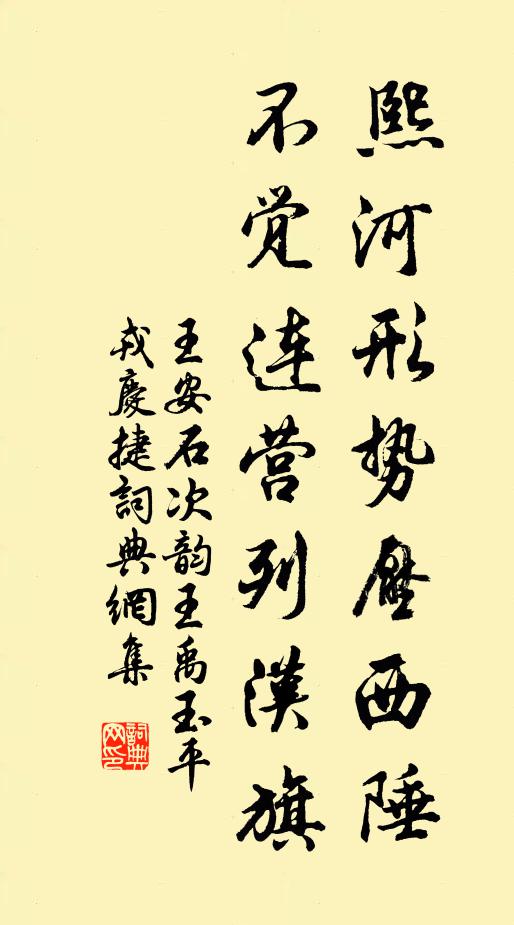 熙河形势压西陲
不觉连营列汉旗
王安石次韵王禹玉平
戎慶捷詞典網集
詞典
网印